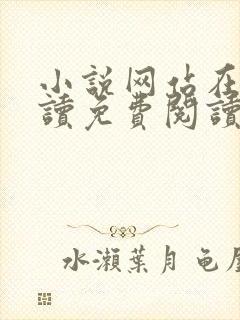 小説网站在
讀免費閱讀
水瀨葉月龟